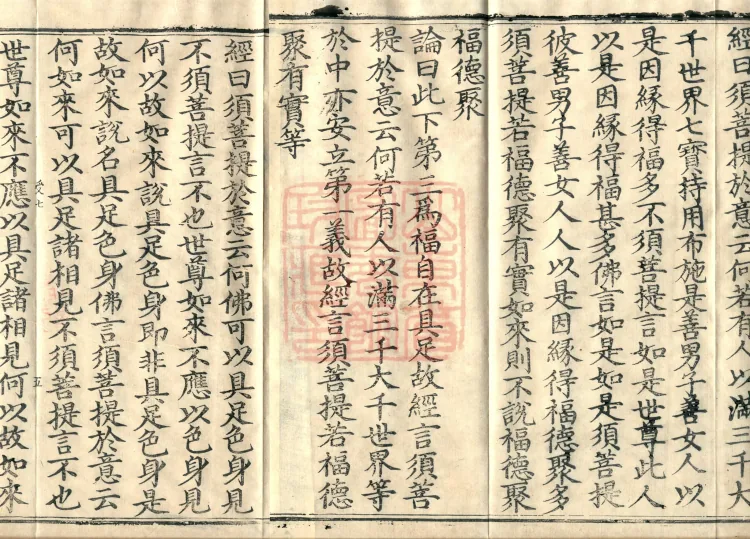 經曰須菩提於意云何若有人以滿三千大
千世界七寶持用布施是善男子善女人以
是因緣得福多不須菩提言如是世尊此人
以是因緣得福甚多佛言如是如是須菩提
彼善男子善女人人以是因緣得福德聚多
須菩提若福德聚有實如來則不說福德聚
福德聚
論曰此下第三爲福自在具足故經言須菩
提於意云何若有人以滿三千大千世界等
於中亦安立第一義故經言須菩提若福德
聚有實等
經曰須菩提於意云何佛可以具足色身見
不須菩提言不也世尊如來不應以色身見
何以故如來說具足色身即非具足色身是
故如來說名具足色身佛言須菩提於意云
何如來可以具足諸相見不須菩提言不也
世尊如來不應以具足諸相見何以故如來